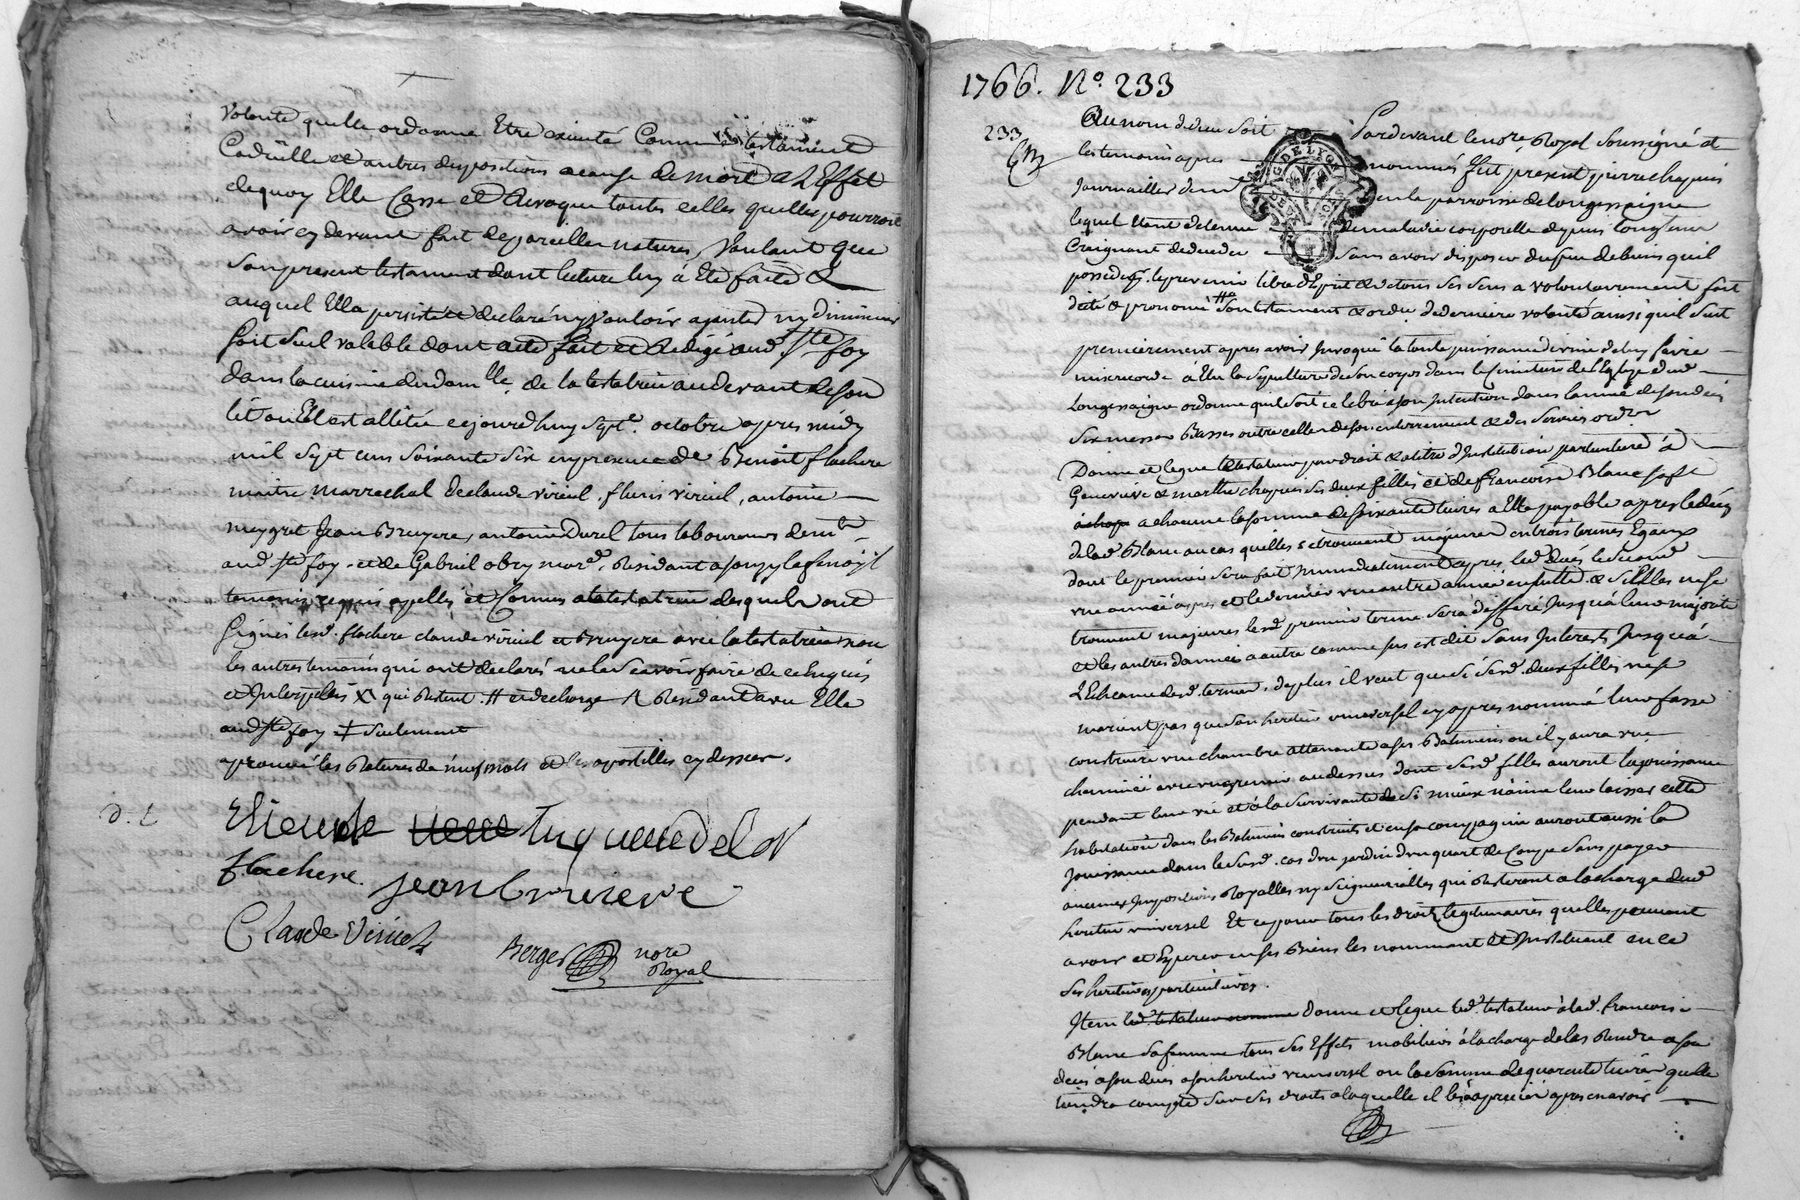 volonté quelle ordonne Etre executé Comme testament
Codicille et autres dispositions a cause de mort a L'Effet
dequoy Elle Casse et Revoque toutes celles quelle pourroit
avoir cy devant fait de pareilles natures, voulant que
son present testament dont lecture luy a Eté faite &
auquel Ella persiste et declaré ny vouloir ajouter ny diminuer
soit seul valable dont acte fait et Redigé aud. Ste foy
dans la cuisine du dom.lle de la testatrice au devant de son
lit ou Elle est allitée cejourdhuy sept.e octobre apres midy
mil sept cens soixante six en presence de Benoit flachere
maitre marrechal Declaude viricel, fleuris viricel, antoine
meygret Jean Bruyere, antoine Durel tous laboureurs dem.t
aud. Ste foy et de Gabriel obry mar.d. Residant a souzy Largentiere
temoins requis appellés et Connus a la testatrice desquels ont
signés lesd. flachere claude viricel et bruyere avec la testatrice non
les autres temoins qui ont declarés ne le scavoir faire de ce Enquis
et Interpellés X qui Restent # et decharge Residant avec Elle
aud. Ste foy ‡ seulement
aprouvé les Ratures de neuf mots et les apostilles cy dessus.
D. L
flachere. jean bruiere
Claude Viricel
Berger nore
Royal
1766. No. 233
233
Au nom de dieu soit Pardevant le no.re Royal soussigné et
les temoins apres nommés fut present pierre chapuis
Journaillier dem.t en la parroisse de longessaigne
lequel Etant detenu de maladie corporelle depuis longtems
Craignant de deceder sans avoir disposer du peu de biens quil
possede, le prevenir libre d'Esprit & de tous ses sens a volontairement fait
dicté & prononcé # son testament & ordre de derniere volonté ainsi quil suit
premierement apres avoir Invoqué la toute puissance divine de luy faire
misericorde a Elu la sepulture de son corps dans le Cimetiere de l'Eglise dud.
Longessaigne ordonne quil soit celebré a son Intention dans l'année de son decés
six messes Basses outre celles de son enterrement & des services ord.res
Donne et legue le testateur par droit & a titre d'Institution particuliere à
Genevieve & marthe chapuis ses deux filles et de francoise Blanc sa f.e
a chacune la somme de soixante livres a Elle payable apres le decés
de lad. Blanc au cas quelles se trouvent majeures en trois termes Egaux
dont le premier sera fait Immediatement apres led. decés le second
une année apres et le dernier une autre année ensuitte & si Elles ne se
trouvent majeures lesd. premier terme sera differé Jusqu'à leur majorité
et les autres d'année a autre comme sus est dit sans Interests Jusqu'à
L'Echeance desd. termes, de plus il veut que si sesd. deux filles ne se
marient pas que son heritier universel cy apres nommé leur fasse
construire une chambre attenante a ses Batimens ou il y aura une
cheminée avec un grenier au dessus dont sesd. filles auront la jouissance
pendant leur vie et a la survivante de si mieux n'aime leur laisser cette
habitation dans les Batimens construits et en sa compagnie auront aussi la
jouissance dans le susd. cas d'un jardin d'un quart de Coupe sans payer
aucunes Impositions Royalles ny seigneurialles qui Resteront a la charge dud.
heritier universel Et ce pour tous les droits legitimaires quelles peuvent
avoir et Esperer en ses Biens les nommant et Instituant en ce
ses heritieres particulieres.
Item led. testateur nomme donne et legue led. testateur à lad. francoise
Blanc sa femme tous ses Effets mobiliers à la charge de les Rendre a son
decés a son heritier universel ou la somme de quarante livres quelle
tiendra compte sur ses droits a laquelle il les a aprecier apres en avoir